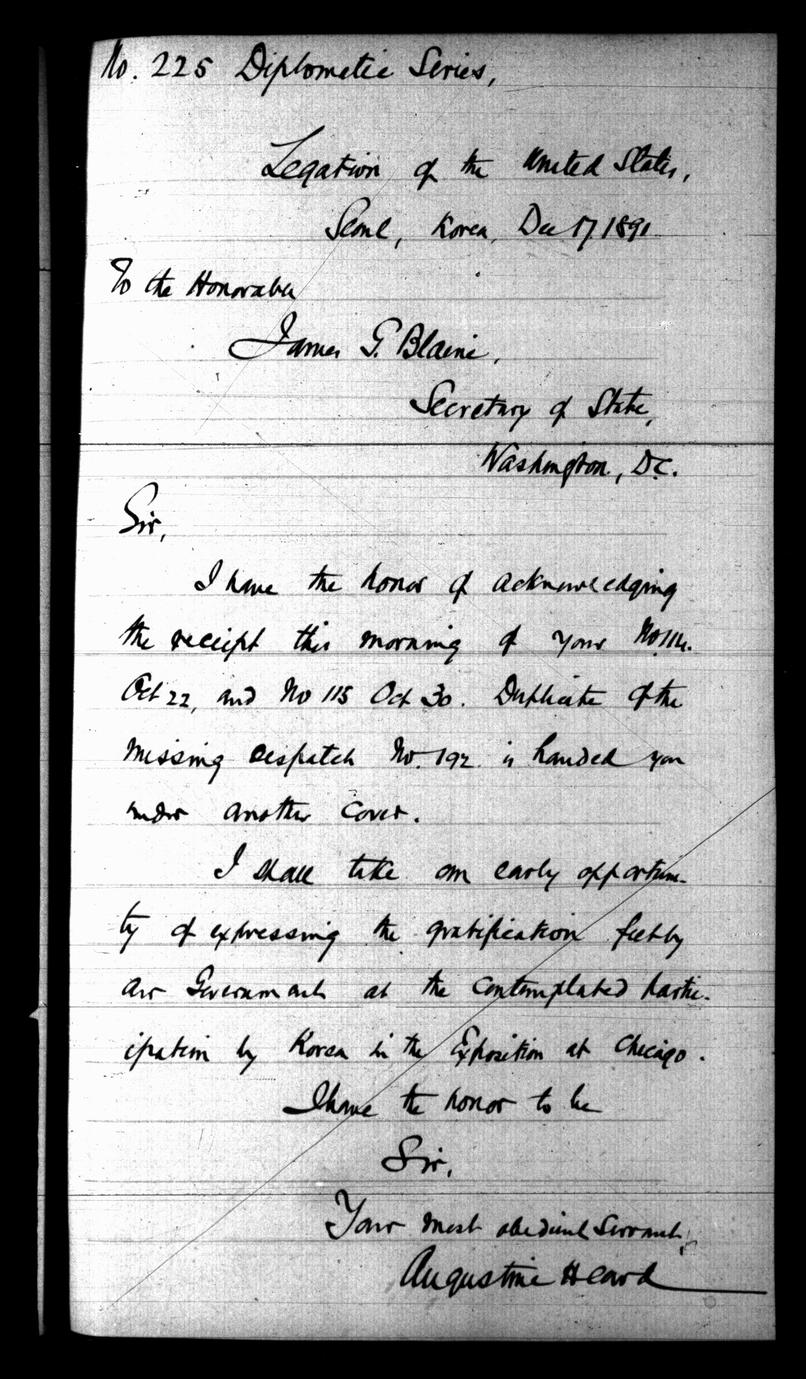 No. 225 Diplomatic Series,
Legation of the United States,
Seoul, Korea, Dec 17, 1891
To the Honorable
James G. Blaine,
Secretary of State,
Washington, D.C.
Sir,
I have the honor of acknowledging
the receipt this morning of your No. 114.
Oct 22, and No 115 Oct 30. Duplicate of the
missing despatch No. 192 is handed you
under another cover.
I shall take an early opportuni-
ty of expressing the gratification felt by
our Government at the contemplated partic-
ipation by Korea in the Exposition at Chicago.
I have the honor to be
Sir,
Your most obedient Servant,
Augustine Heard